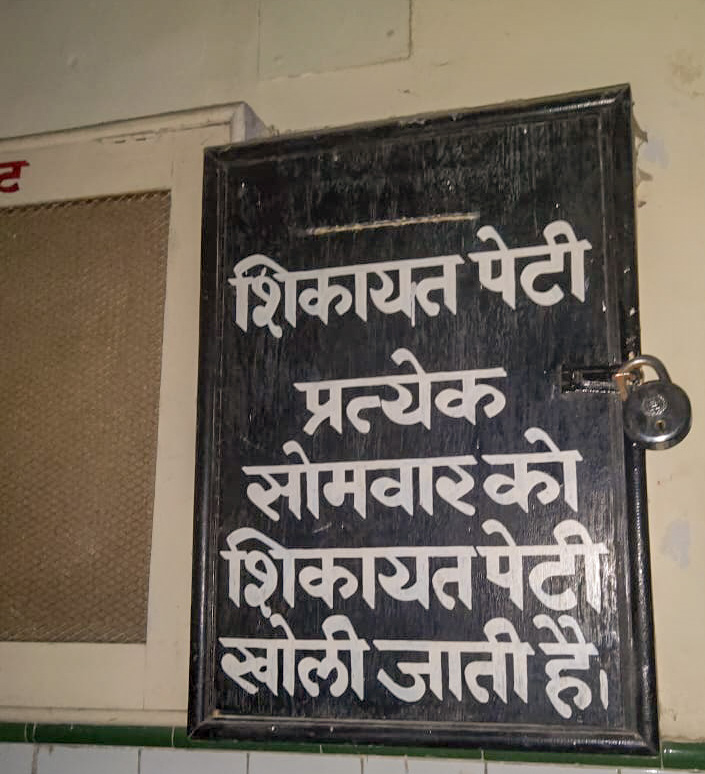 शिकायत पेटी
प्रत्येक
सोमवार को
शिकायत पेटी
खोली जाती है।